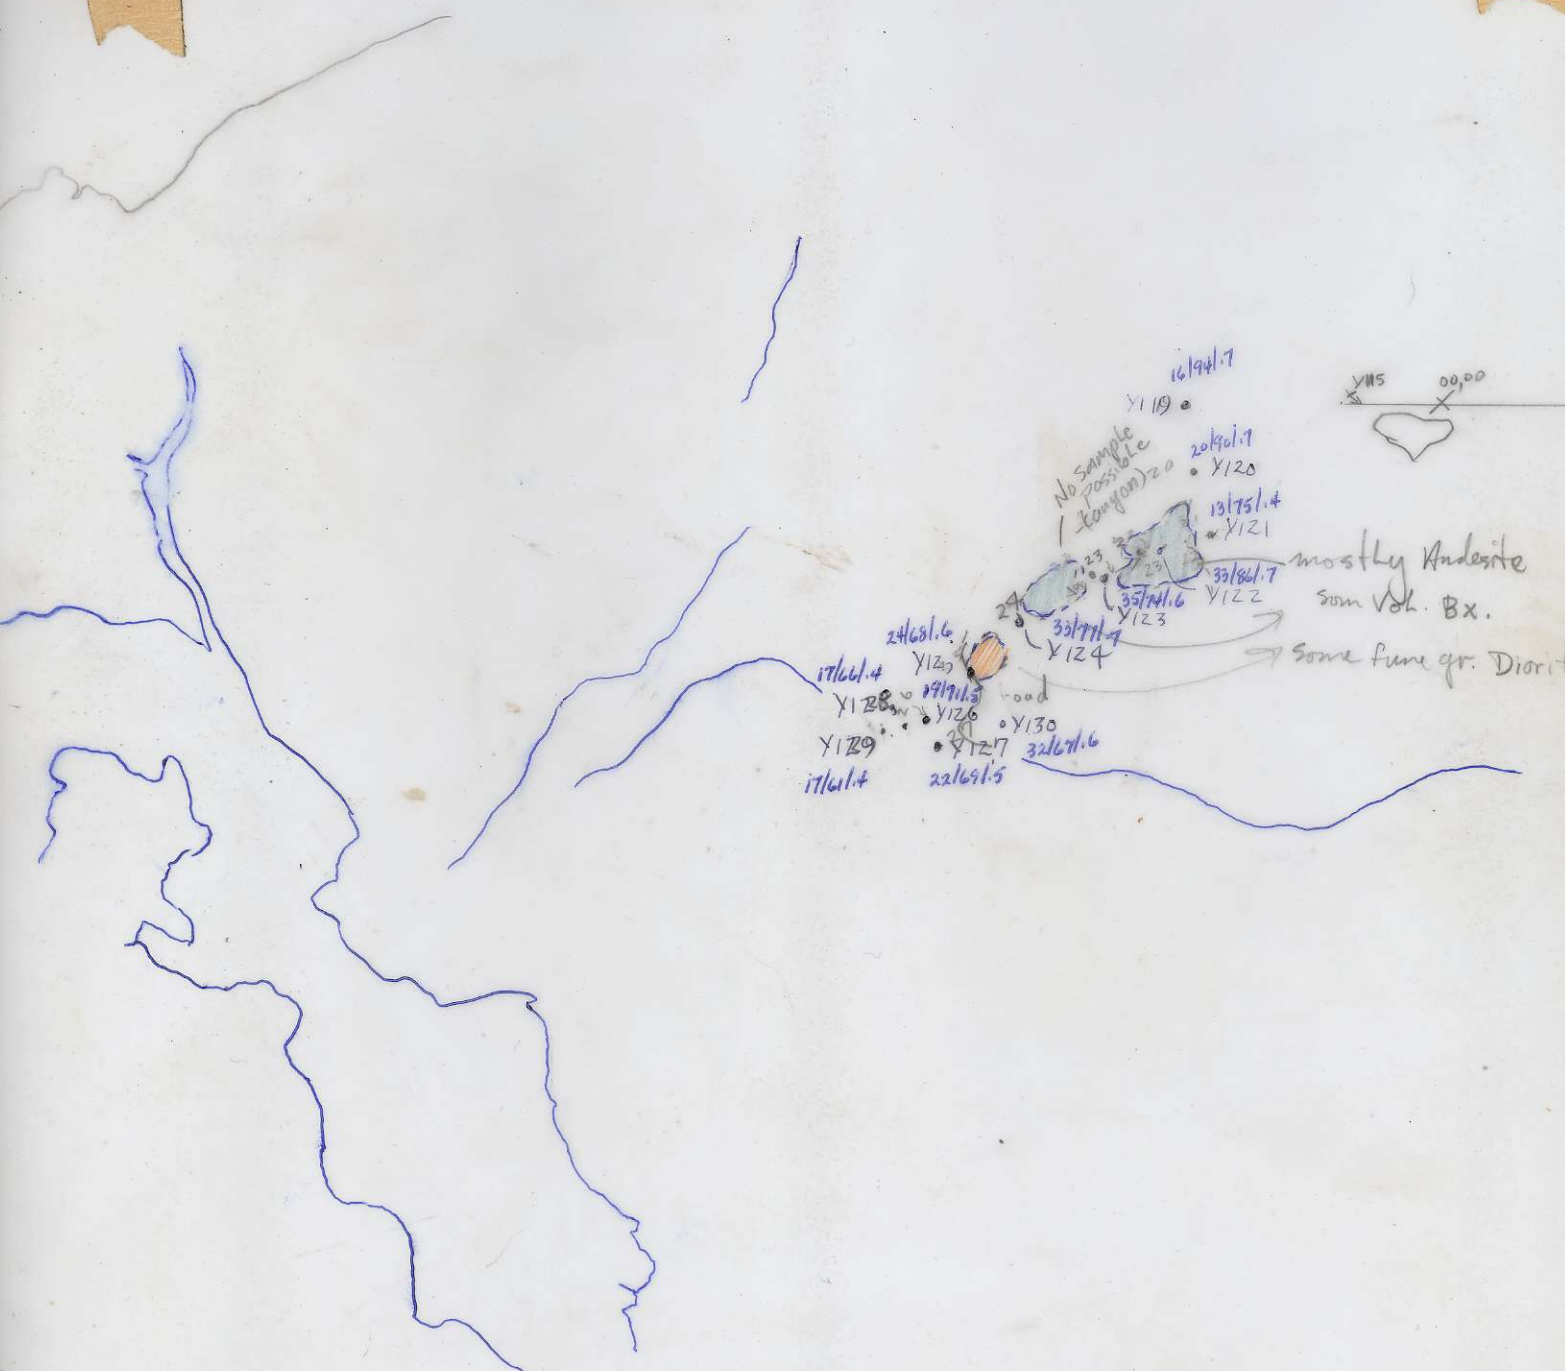 16/94/.7
Y119
Y115
00,00
No sample
possible
(canyon)
20
20/90/.7
Y120
13/75/.4
Y121
23
23
mostly Andesite
33/86/.7
Y122
som Vol. Bx.
35/74/.6
Y123
24
33/77/.7
Y124
some fine gr. Diorit
24/68/.6
17/66/.4
19/71/.5
road
Y126
Y130
Y129
Y127
32/67/.6
17/61/.4
22/69/.5